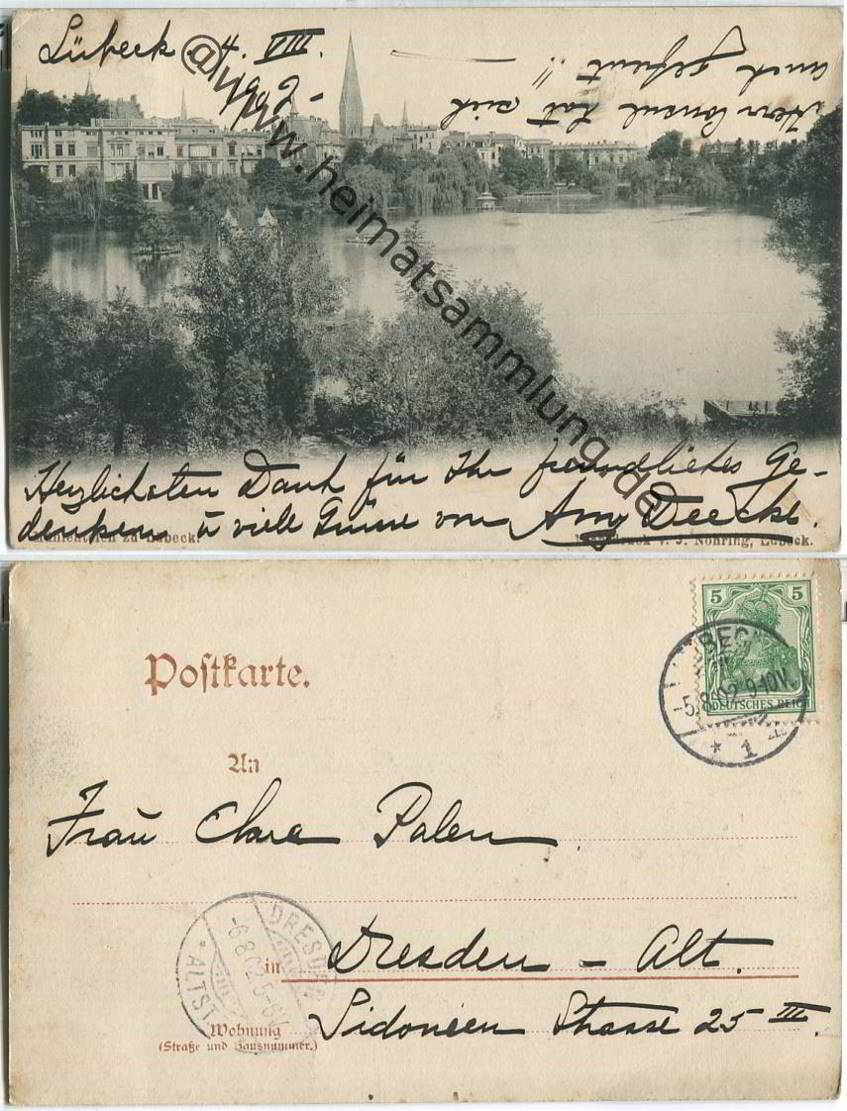 Lübeck. 4. VIII.
1902 -
Herr Consul hat sich
auch gefreut!!
@www.heimatsammlung.de
Herzlichsten Dank für Ihr freundliches Ge-
denken u viele Grüsse von Amy Deecke.
zu Lübeck.
v. J. Nöhring, Lübeck.
Postkarte.
5 5
DEUTSCHES REICH
-5.8.02. 9-10V.
* 1
An
Frau Clara Palen
DRESDEN
-6.8.02. 5-6
* ALTST.
in Dresden - Alt.
Wohnung Sidonien Strasse 25 III.
(Straße und Hausnummer.)